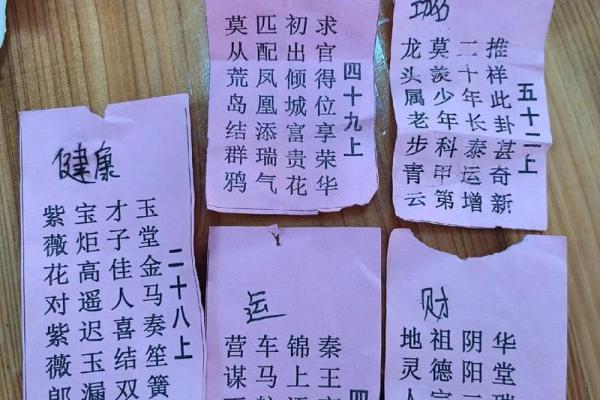 四十九上
求官得位享荣华
初出倾城富贵花
匹配凤凰添瑞气
莫从荒岛结群鸦
五十二上
推祥此卦甚奇新
二十年长泰运增
莫羡少年科甲第
龙头属老步青云
健康
二十八上
玉堂金马奏笙簧
才子佳人喜结双
宝炬高遥迟玉漏
紫薇花对紫薇郎
运
四
秦王
锦上
车马
营谋
财
华堂瑞
阴阳
祖德
地灵人